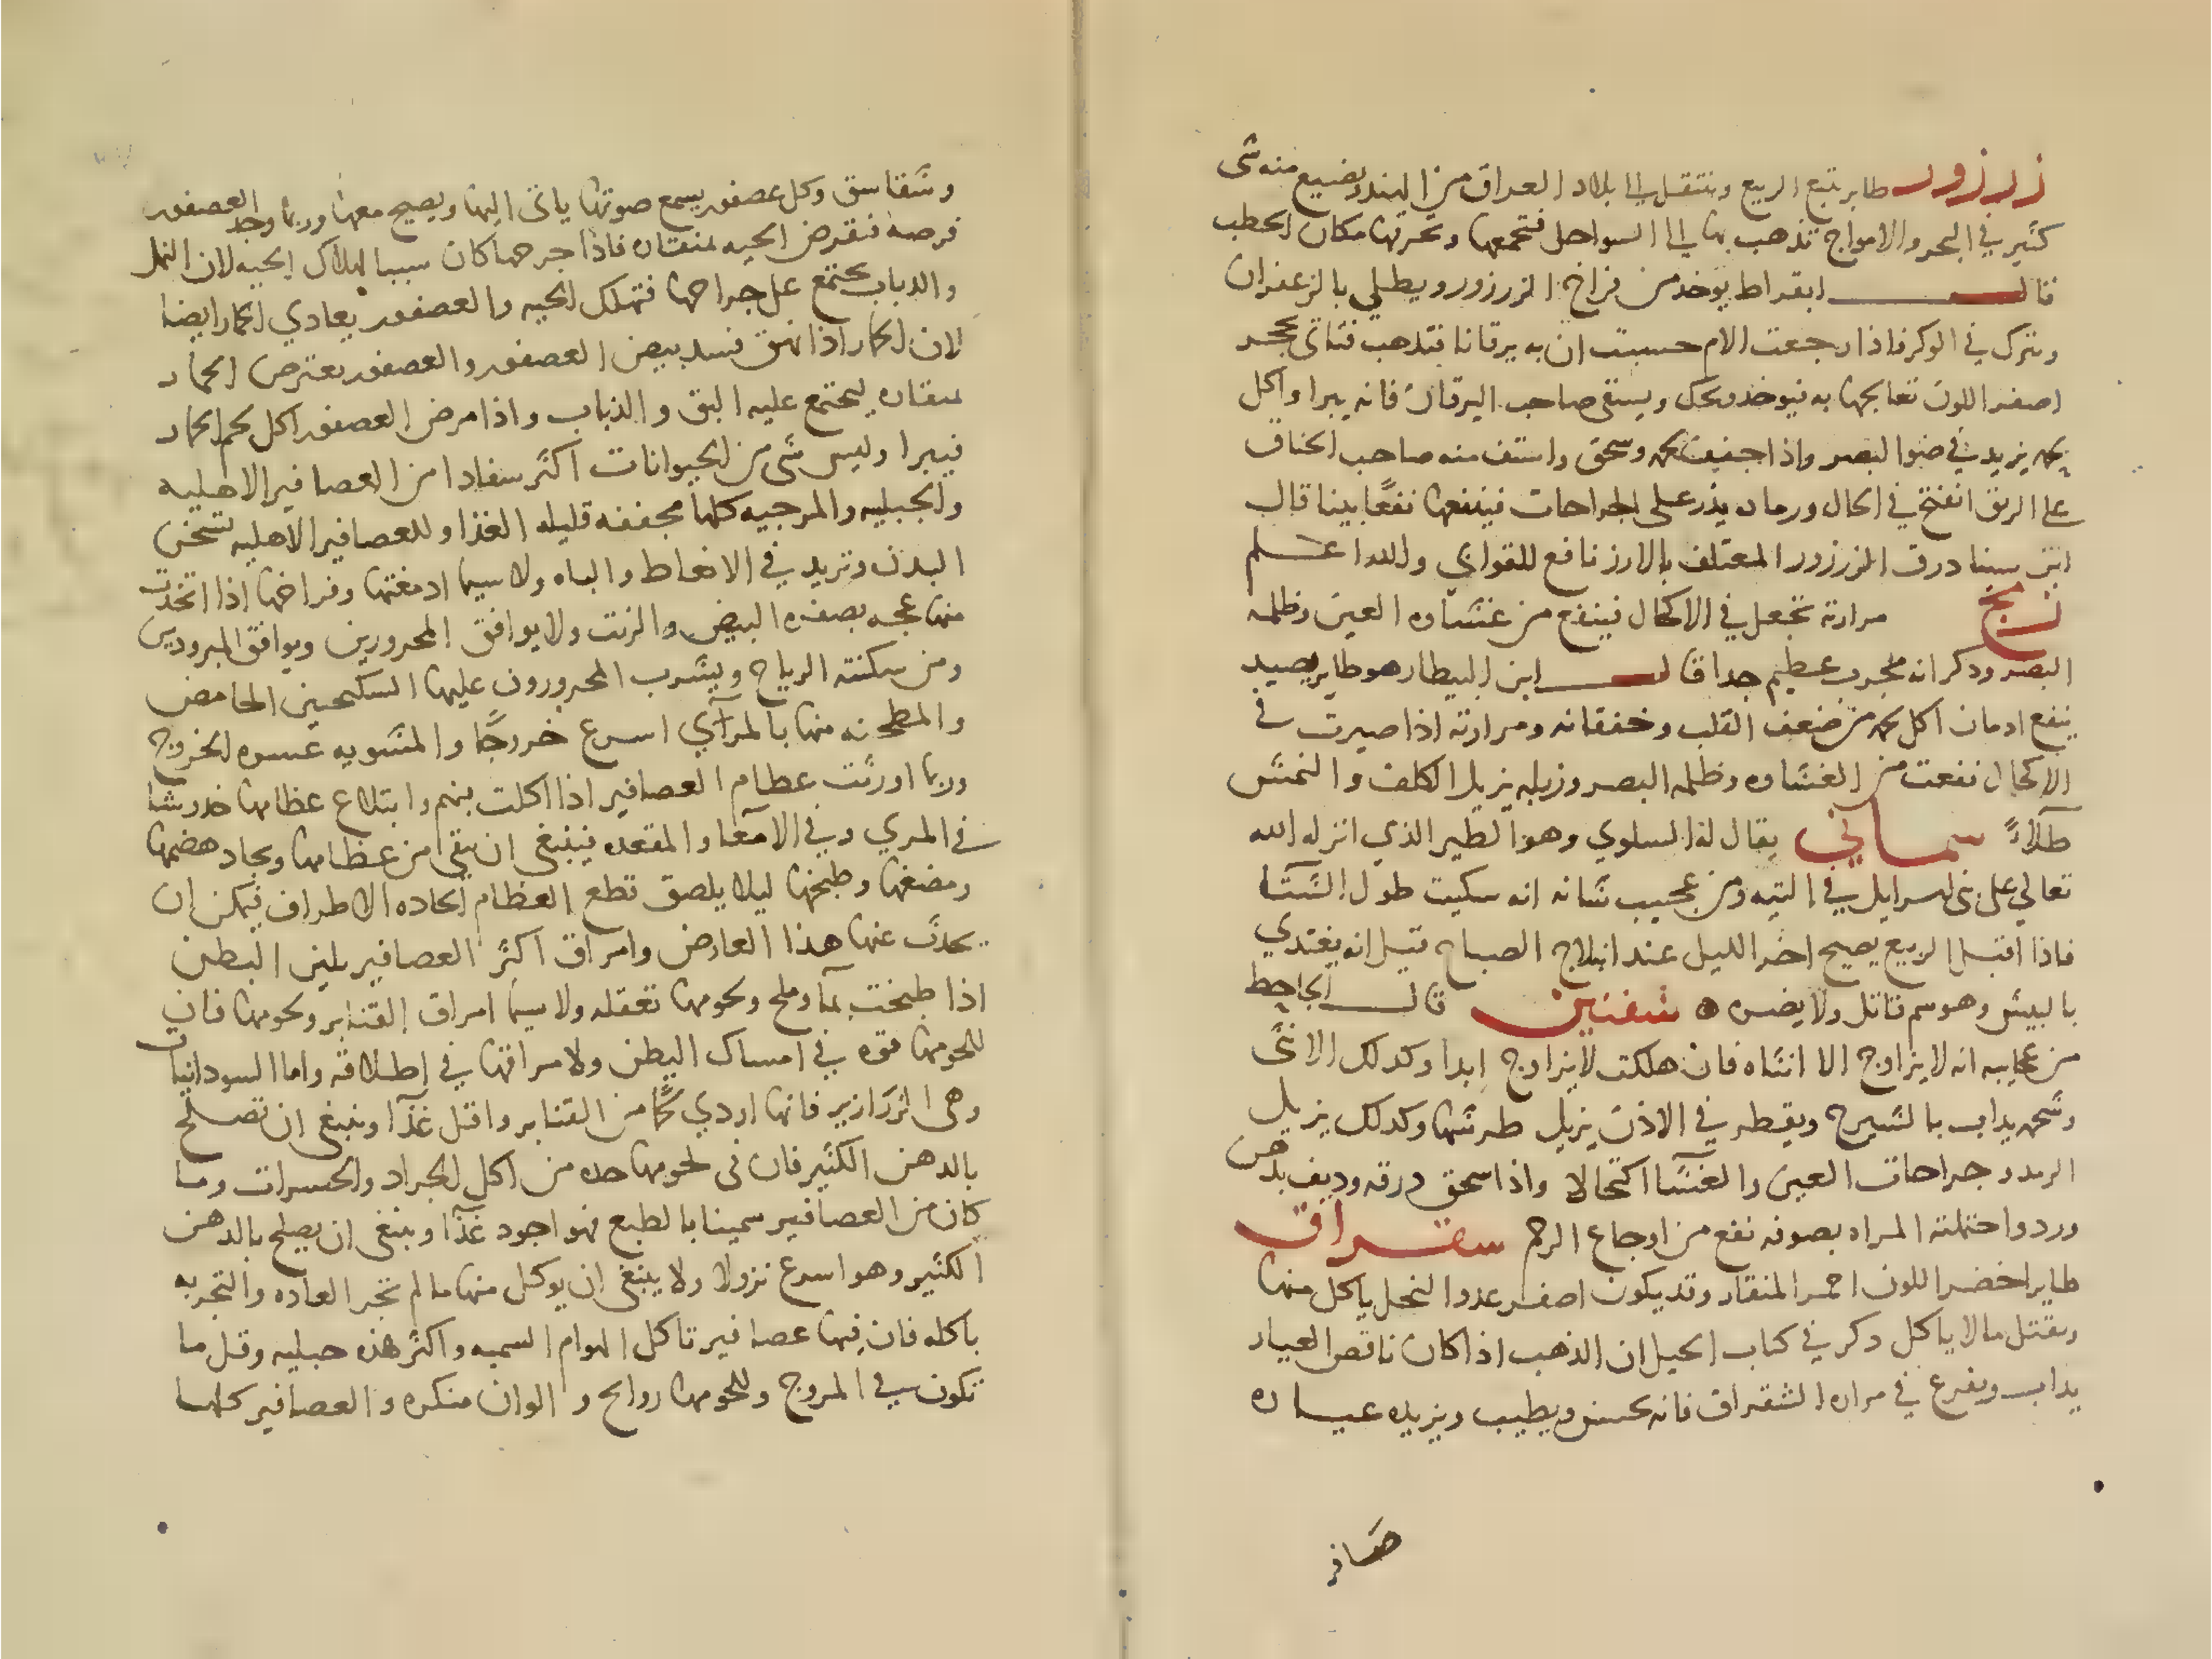 زرزور طاير يتبع الربيع وينتقل الى بلاد العراق من الهند ويضيع منه شى
كثير في البحر والامواج تذهب بها الى السواحل فتجمعها وتحرقها مكان الحطب
قال ابقراط يوخذ من فراخ الزرزور ويطلي بالزعفران
ويترك في الوكر فاذا رجعت الام حسبت ان به يرقانا فتذهب فتاتى بحجر
اصفر اللون تعالجها به فيوخذ ويحك ويسقى صاحب اليرقان فانه يبرا واكل
لحمه يزيد في ضوا البصر واذا جفف لحمه وسحق واستف منه صاحب الخناق
على الريق انفتح في الحال ورماده يذر على الجراحات فينفعها نفعًا بينا قال
ابن سينا درق الزرزور المعتلف بالارز نافع للقوابي والله اعلم
مرارته تجعل في الاكحال فينفع من غشاوه العين وظلمه
البصر وذكر انه مجرب عظيم جدا قال ابن البيطار هو طاير يصيد
ينفع ادمان اكل لحمه من ضعف القلب وخفقانه ومرارته اذا صيرت في
الاكحال نفعت من الغشاوه وظلمه البصر وزبله يزيل الكلف والنمش
طلاءً سماني يقال له السلوي وهو الطير الذي انزله الله
تعالي على بنى اسرايل في التيه ومن عجيب شانه انه سكيت طول الشتا
فاذا اقبل الربيع يصيح اخر الليل عند ابلاج الصباح قيل انه يغتدي
بالبيش وهو سم قاتل ولا يضره شفنين قال الجاحظ
من عجايبه انه لا يزاوج الا انثاه فان هلكت لا يزاوج ابدا وكدلك الانثى
وشحمه يداب بالشيرج ويقطر في الاذن يزيل طرشها وكدلك يزيل
الرمد وجراحات العين والغشا اكتحالا واذا سحق درقه وديف بدهن
ورد واحتملته المراه بصوفه نفع من اوجاع الرحم سقراق
طاير اخضر اللون احمر المنقار وقد يكون اصفر عدو النحل ياكل منها
ويقتل ما لا ياكل دكر في كتاب الحيل ان الذهب اذا كان ناقص العيار
يداب ويفرغ في مراره الشقراق فانه يحسن ويطيب ويزيد عياره
وشقاسق وكل عصفور يسمع صوتها ياتى اليها ويصيح معها وربما وجد العصفور
فرصه فنقرض الحيه بمنقاره فاذا جرحها كان سببا لهلاك الحيه لان النمل
والدباب يجتمع على جراحها فتهلك الحيه والعصفور يعادي الحمار ايضا
لان الحمار اذا نهق فسد بيض العصفور والعصفور يعترض الحمار
بمنقاره ليجتمع عليه البق والذباب واذا مرض العصفور اكل لحم الحمار
فيبرا وليس شى من الحيوانات اكثر سفادا من العصافير الاهليه
والجبليه والمرجيه كلها مجففه قليله الغذا وللعصافير الاهليه تسخن
البدن وتزيد في الانعاظ والباه ولا سيما ادمغتها وفراخها اذا اتخذت
منها عجه بصفره البيض والزيت ولا يوافق المحرورين ويوافق المبرودين
ومن سكنته الرياح ويشرب المحرورون عليها السكنجبين الحامض
والمطجنه منها بالمرآي اسرع خروجًا والمشويه عسره الخروج
وربما اورثت عظام العصافير اذا اكلت بنهم وابتلاع عظامها خدوشا
في المري وفي الامعا والمقعده فينبغى ان ينقى من عظامها ويجاد هضمها
ومضغها وطبخها ليلا يلصق قطع العظام الحاده الاطراف فيمكن ان
يحدث عنها هذا العارض وامراق اكثر العصافير يلين البطن
اذا طبخت بمآ وملح ولحومها تعقله ولا سيما امراق القنابر ولحومها فان
للحومها قوه في امساك البطن ولا مراقها في اطلاقه واما السودانيات
وهى الزرازير فانها اردي لحمًا من القنابر واقل غذآ وينبغى ان تصلح
بالدهن الكثير فان فى لحومها حده من اكل الجراد والحسرات وما
كان من العصافير سمينا بالطبع فهو اجود غذآ وينبغى ان يصلح بالدهن
الكثير وهو اسرع نزولا ولا ينبغى ان يوكل منها ما لم تجر العاده والتجربه
باكله فان فيها عصافير تاكل الهوام السميه واكثر هذه جبليه وقل ما
تكون في المروج وللحومها روايح والوان منكره والعصافير كلها